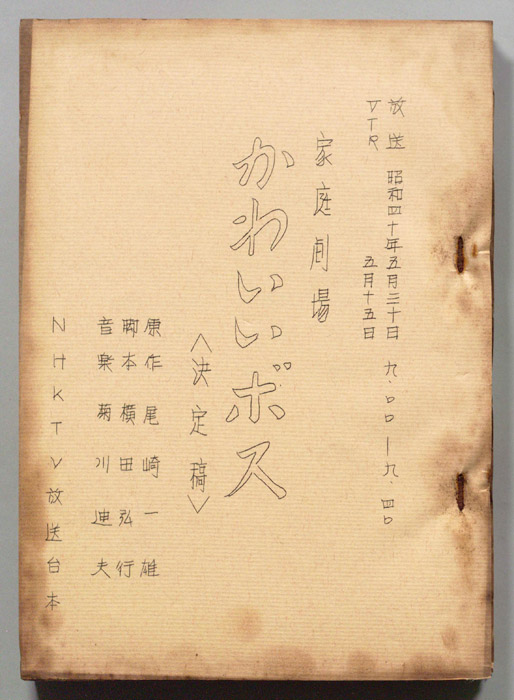 放送 昭和四十年五月三十日 九・〇〇―九・四〇
VTR 五月十五日
家庭劇場
かわいいボス
〈決定稿〉
原作 尾崎一雄
脚本 横田弘行
音楽 菊川迪夫
NHKTV放送台本